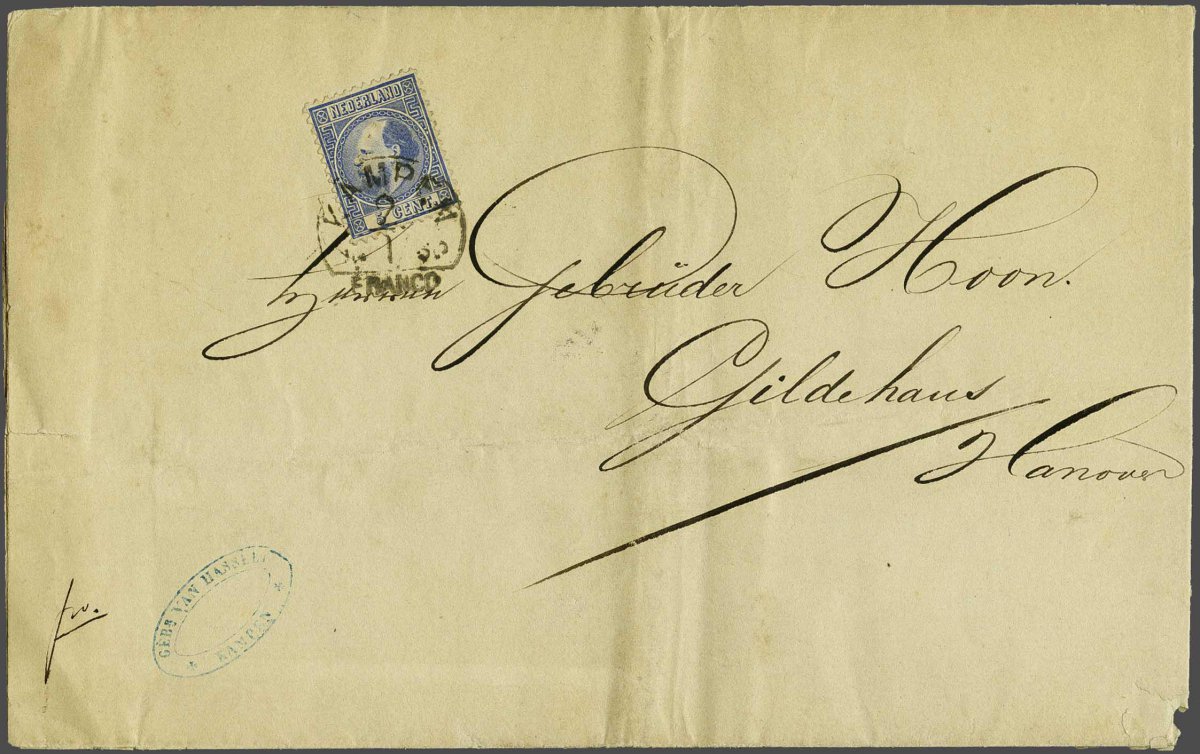 NEDERLAND
CENT.
KAMPEN
2
1
FRANCO
Herren Gebrüder Hoon.
Gildehaus
Hanover
fro.
GEBRS VAN HASSELT
* KAMPEN *